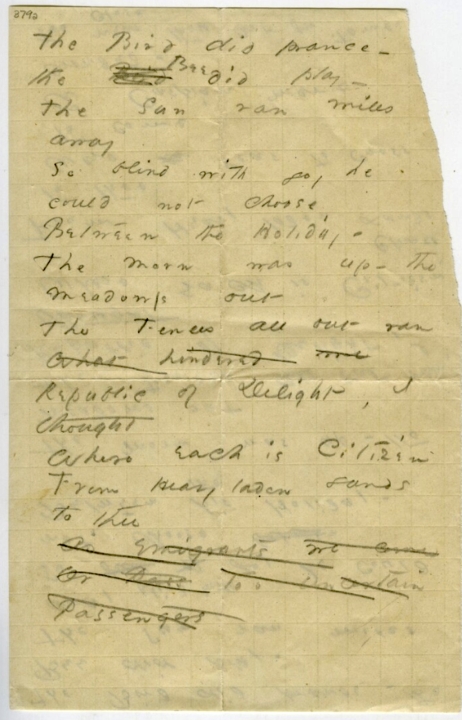 379a
The Bird did prance -
the Bird Bee did play -
The Sun ran miles
away
So blind with joy he
could not choose
Between the Holiday -
The morn was up - the
meadows out
The Fences all but ran
What hindered me
Republic of Delight, I
thought
Where each is Citizen
From Heavy laden Lands
to thee
As Emigrants we come
Or pass too Uncertain
Passengers